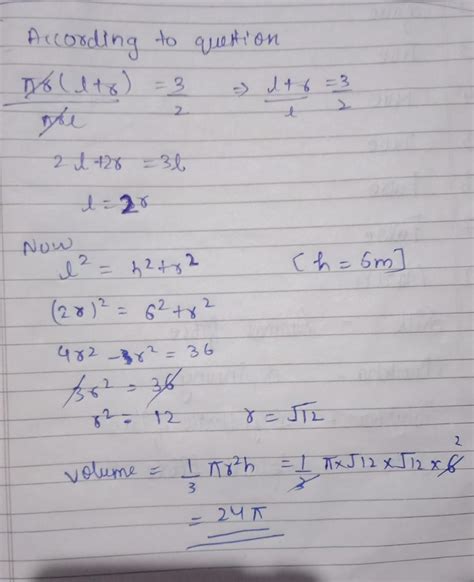 According to question
πr(l+r)/πrl = 3/2 ⇒ l+r/l = 3/2
2l+2r = 3l
l = 2r
Now
l² = h²+r² [h = 6m]
(2r)² = 6²+r²
4r² - r² = 36
3r² = 36
r² = 12 r = √12
volume = 1/3 πr²h = 1/3 π×√12×√12×6 2
= 24π